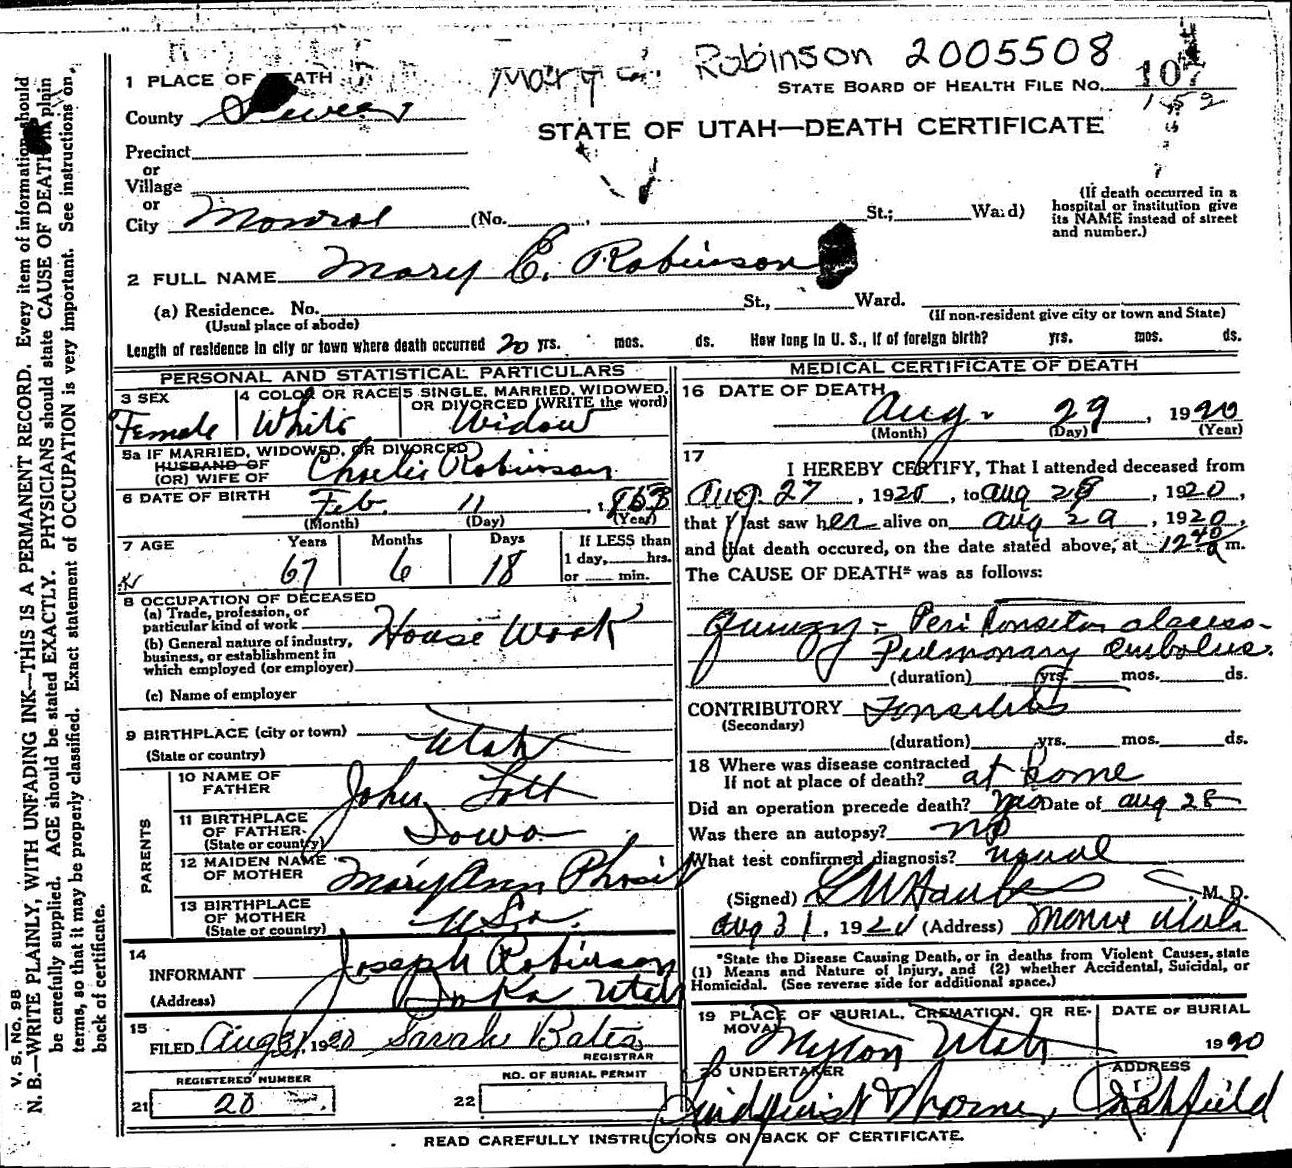 Mary E. Robinson 2005508
1 PLACE OF DEATH
STATE BOARD OF HEALTH FILE NO. 107
152
County Sevier
STATE OF UTAH—DEATH CERTIFICATE
Precinct
or
Village
or
City Monroe (No. , St.; Ward)
(If death occurred in a hospital or institution give its NAME instead of street and number.)
2 FULL NAME Mary E. Robinson
(a) Residence. No. St., Ward.
(Usual place of abode)
(If non-resident give city or town and State)
Length of residence in city or town where death occurred 20 yrs. mos. ds. How long in U. S., if of foreign birth? yrs. mos. ds.
PERSONAL AND STATISTICAL PARTICULARS
3 SEX
Female
4 COLOR OR RACE
White
5 SINGLE, MARRIED, WIDOWED, OR DIVORCED (WRITE the word)
Widow
5a IF MARRIED, WIDOWED, OR DIVORCED
HUSBAND OF
(OR) WIFE OF Charlie Robinson
6 DATE OF BIRTH Feb. 11, 1853
(Month) (Day) (Year)
7 AGE
Years Months Days
67 6 18
If LESS than
1 day, hrs.
or min.
8 OCCUPATION OF DECEASED
(a) Trade, profession, or
particular kind of work House Work
(b) General nature of industry,
business, or establishment in
which employed (or employer)
(c) Name of employer
9 BIRTHPLACE (city or town)
(State or country) Utah
PARENTS
10 NAME OF FATHER John Lott
11 BIRTHPLACE OF FATHER
(State or country) Iowa
12 MAIDEN NAME OF MOTHER Mary Ann
13 BIRTHPLACE OF MOTHER
(State or country) U S a
14
INFORMANT Joseph Robinson
(Address) Utah
15
FILED Aug 31, 1920 Sarah Bates
REGISTRAR
REGISTERED NUMBER
21 20
NO. OF BURIAL PERMIT
22
MEDICAL CERTIFICATE OF DEATH
16 DATE OF DEATH
Aug. 29, 1920
(Month) (Day) (Year)
17
I HEREBY CERTIFY, That I attended deceased from
Aug. 27, 1920, to Aug 29, 1920,
that I last saw her alive on Aug 29, 1920,
and that death occured, on the date stated above, at 12 40 a m.
The CAUSE OF DEATH* was as follows:
Quinzy - Peri Tonsilar abscess -
Pulmonary Embolus.
(duration) yrs. mos. ds.
CONTRIBUTORY Tonsilitis
(Secondary)
(duration) yrs. mos. ds.
18 Where was disease contracted
If not at place of death? at home
Did an operation precede death? Date of Aug 28
Was there an autopsy? no
What test confirmed diagnosis? usual
(Signed) M. D.
Aug 31, 1920 (Address) Monroe Utah
*State the Disease Causing Death, or in deaths from Violent Causes, state
(1) Means and Nature of Injury, and (2) whether Accidental, Suicidal, or
Homicidal. (See reverse side for additional space.)
19 PLACE OF BURIAL, CREMATION, OR REMOVAL
Myton Utah
DATE OF BURIAL
1920
20 UNDERTAKER
Lindquist &
ADDRESS
Richfield
READ CAREFULLY INSTRUCTIONS ON BACK OF CERTIFICATE.
V. S. NO. 98
N. B.—WRITE PLAINLY, WITH UNFADING INK—THIS IS A PERMANENT RECORD. Every item of information should
be carefully supplied. AGE should be stated EXACTLY. PHYSICIANS should state CAUSE OF DEATH in plain
terms, so that it may be properly classified. Exact statement of OCCUPATION is very important. See instructions on
back of certificate.